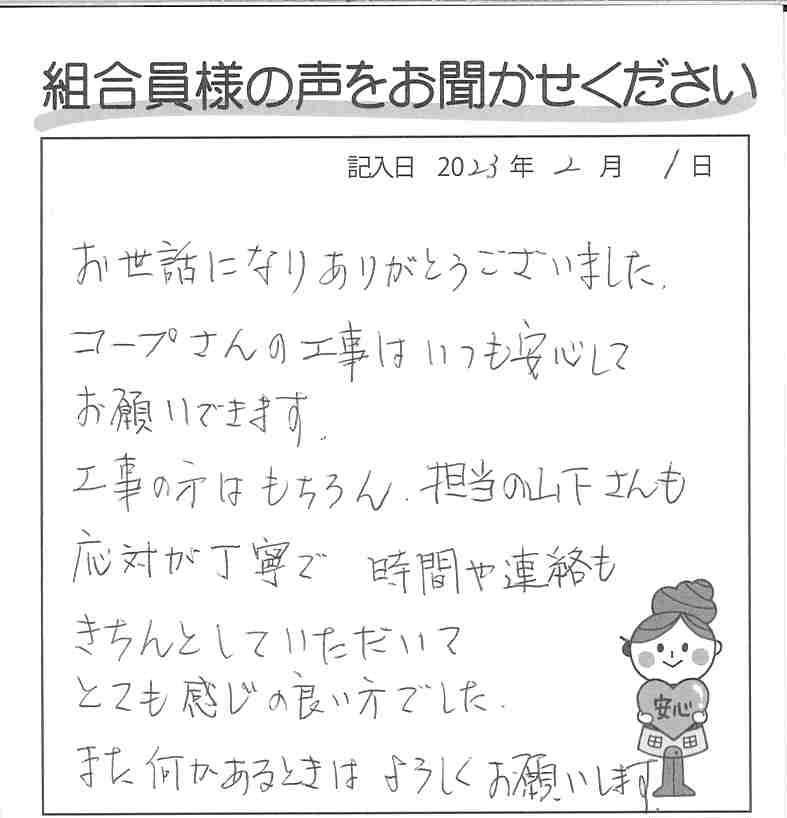 組合員様の声をお聞かせください
記入日 2023年 2月 1日
お世話になりありがとうございました.
コープさんの工事はいつも安心して
お願いできます.
工事の方はもちろん.担当の山下さんも
応対が丁寧で 時間や連絡も
きちんとしていただいて
とても感じの良い方でした.
安心
また何かあるときは よろしくお願いします.